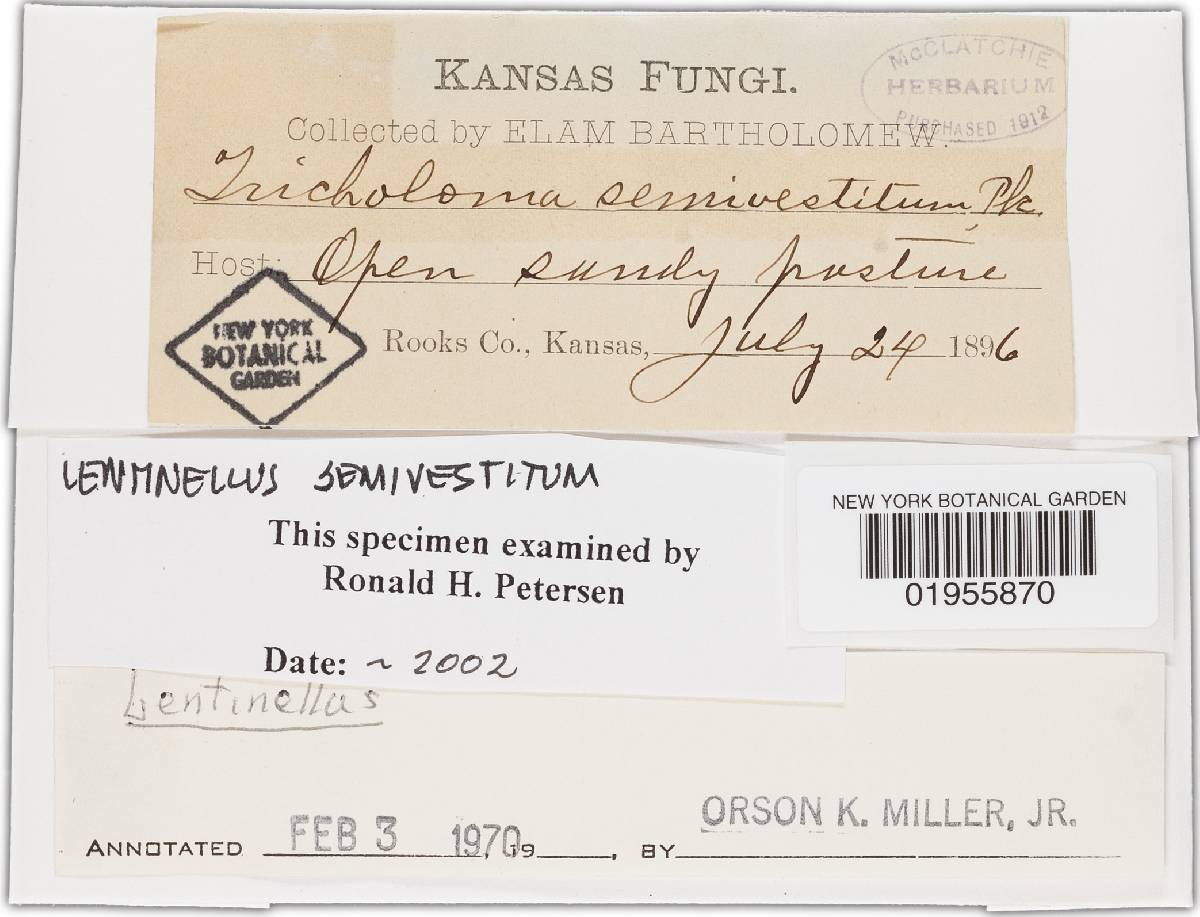 KANSAS FUNGI.
McCLATCHIE
HERBARIUM
PURCHASED 1912
Collected by ELAM BARTHOLOMEW.
Tricholoma semivestitum, Pk.
Host: Open sandy pasture
NEW YORK
BOTANICAL
GARDEN
Rooks Co., Kansas, July 24 1896
LENTINELLUS SEMIVESTITUM
This specimen examined by
Ronald H. Petersen
Date: ~ 2002
NEW YORK BOTANICAL GARDEN
01955870
Lentinellus
ANNOTATED FEB 3 1970, 19__, BY ORSON K. MILLER, JR.